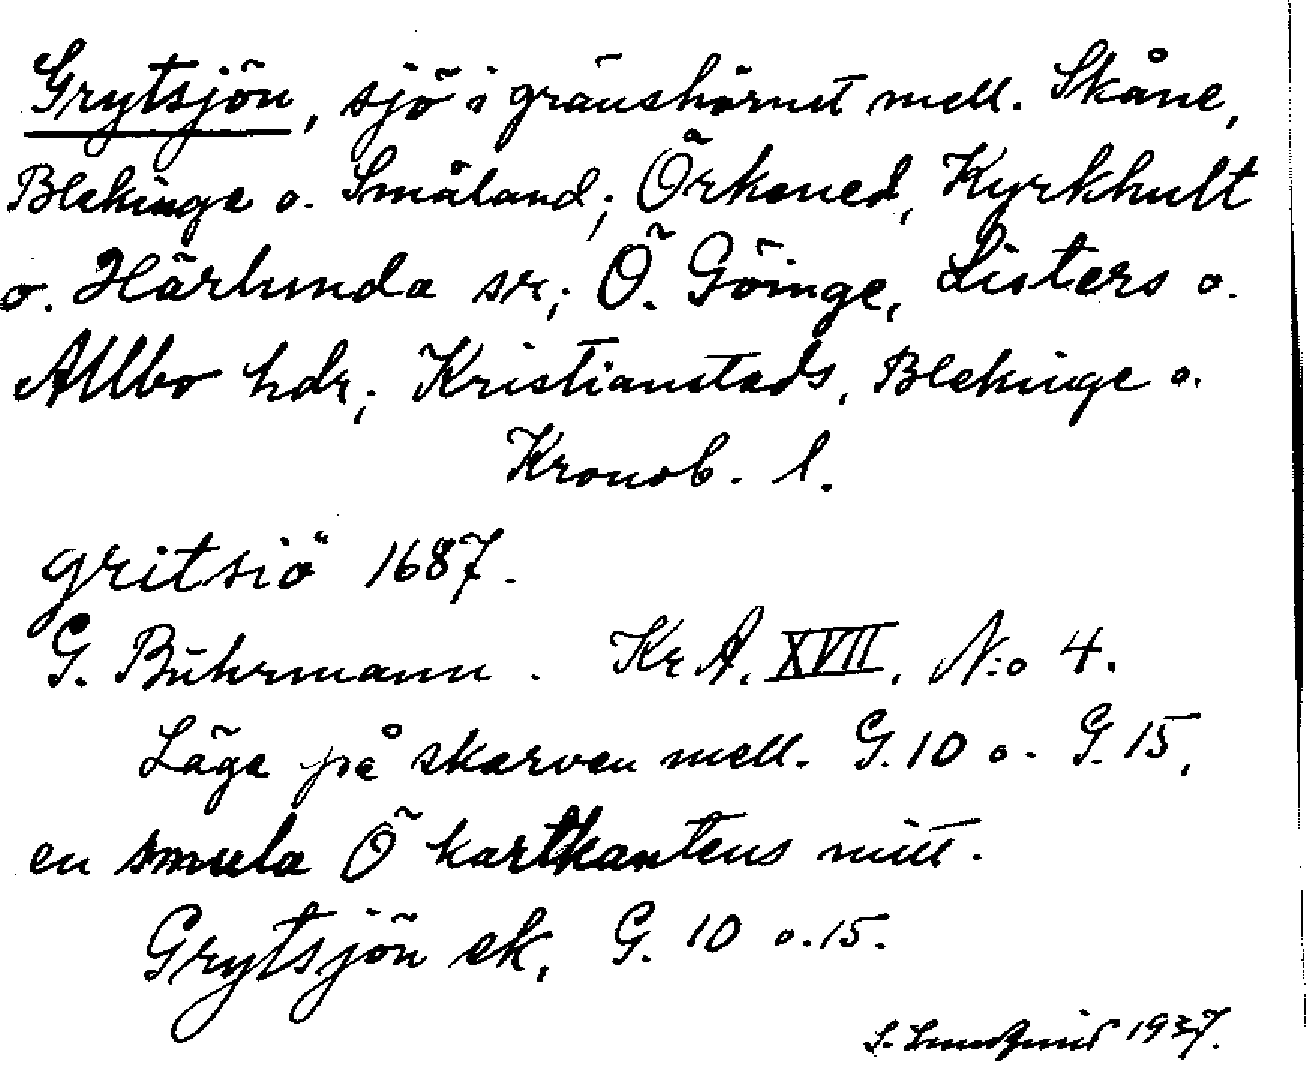 Grytsjön, sjö i gränshörnet mell. Skåne,
Blekinge o. Småland; Örkened, Kyrkhult
o. Härlunda sr; Ö. Göinge, Listers o.
Allbo hdr; Kristianstads, Blekinge o.
Kronob. l.
gritsiö 1687.
G. Buhrmann. KrA. XVII. N:o 4.
Läge på skarven mell. G. 10 o. G. 15,
en smula Ö kartkantens mitt.
Grytsjön ek. G. 10 o. 15.
S. Lundqvist 1937.